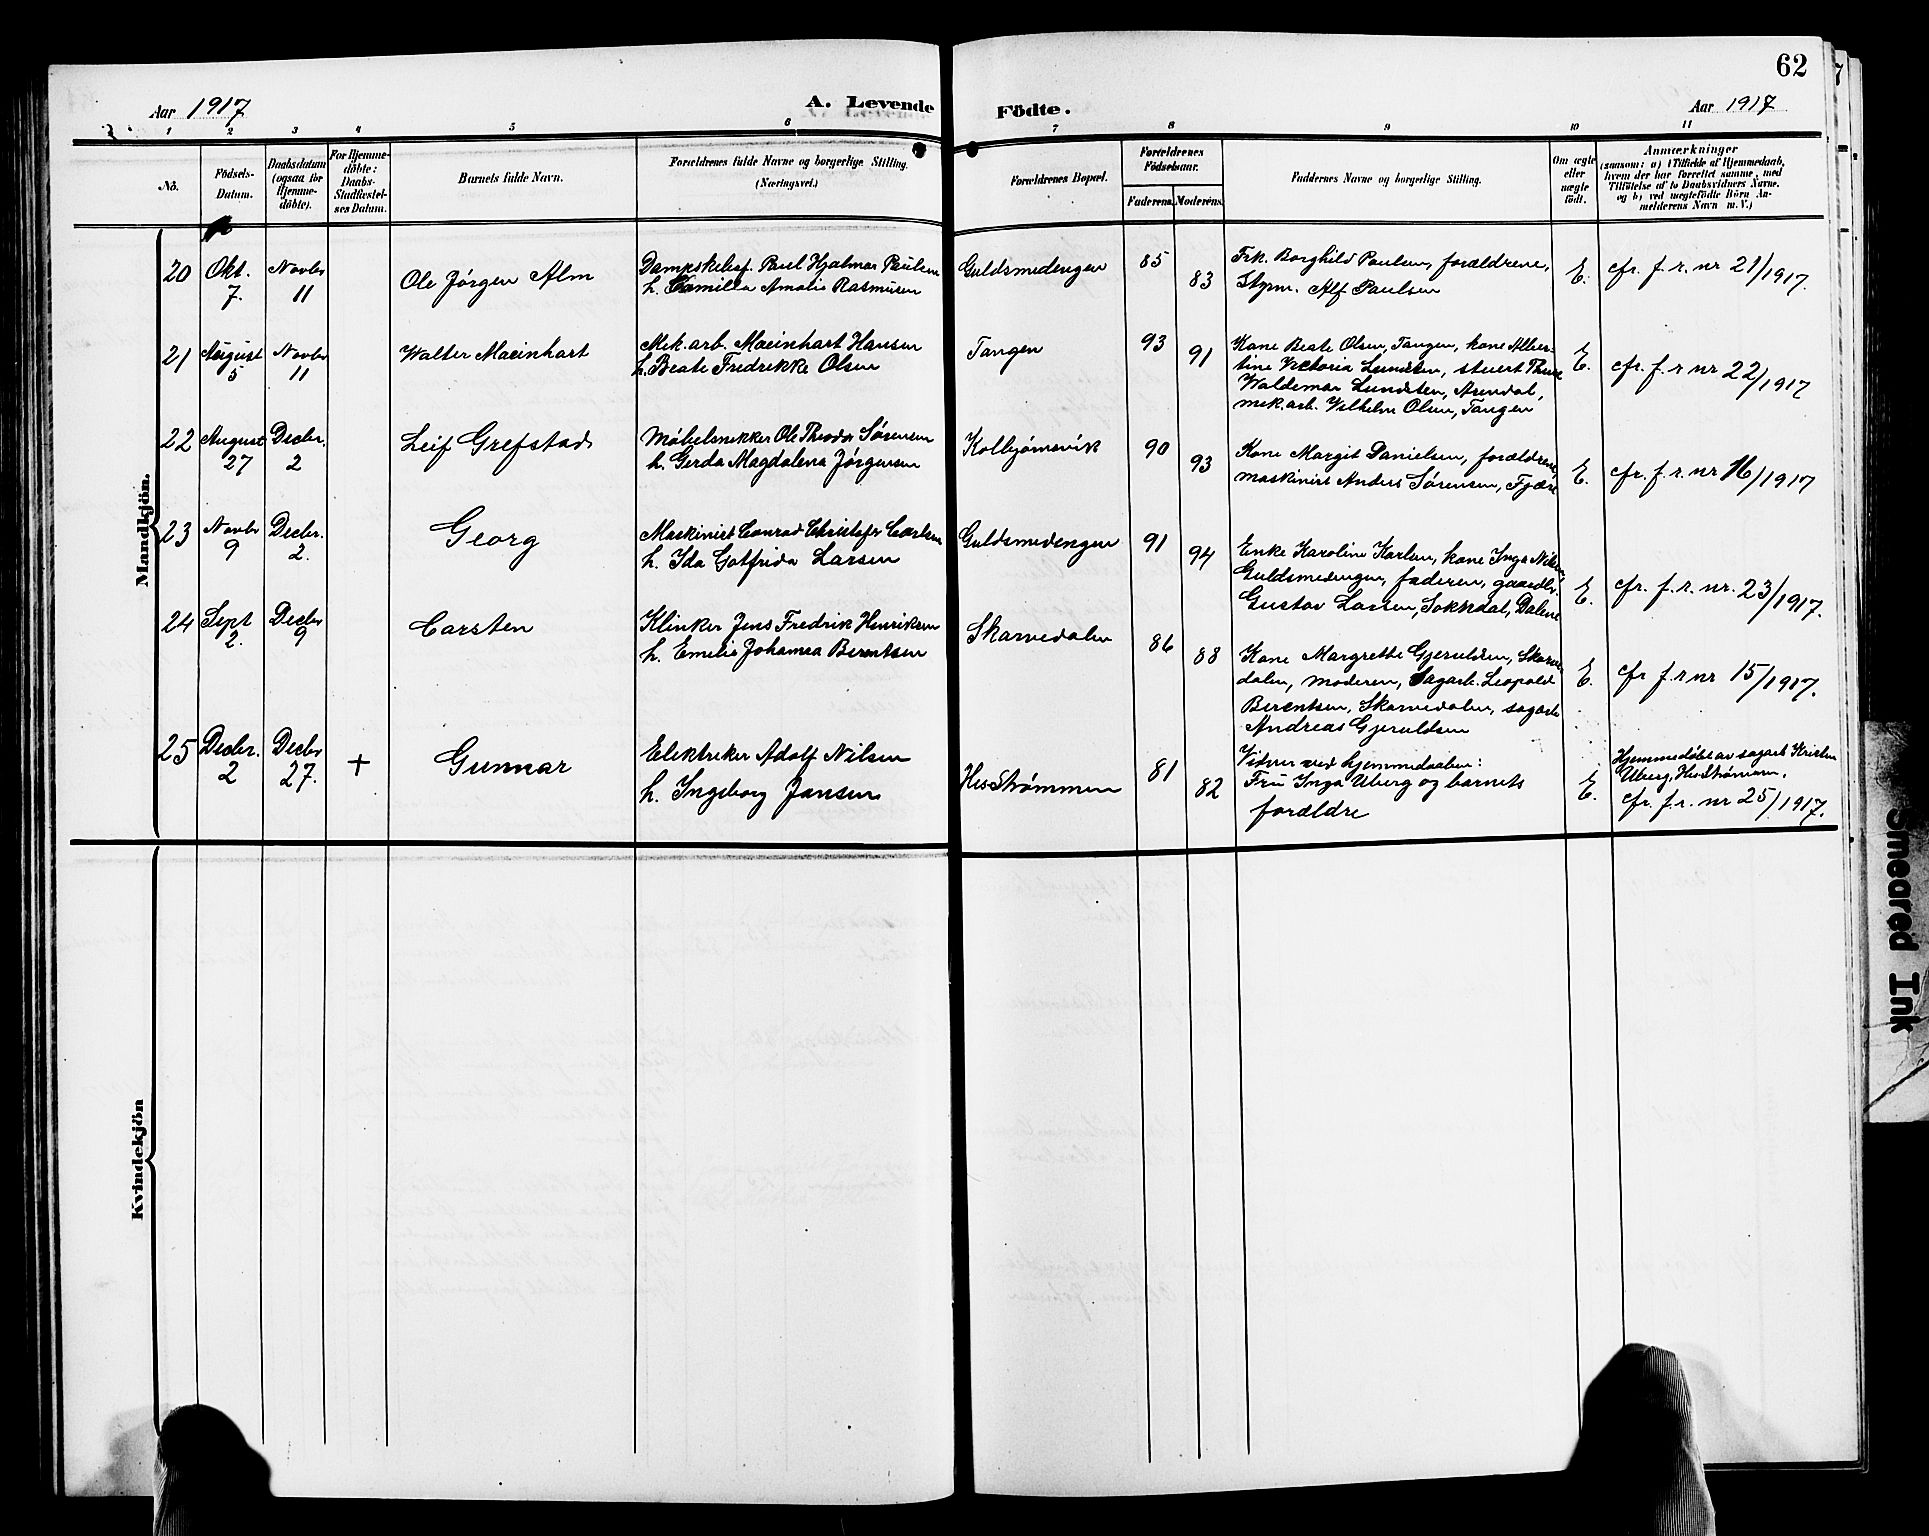 62
Aar 1917
A. Levende
Födte.
Aar 1917
1 2 3 4 5 6 7 8 9 10 11
No.
Födsels-
Datum.
Daabsdatum
(ogsaa för
Hjemme-
döbte).
For Hjemme-
döbte:
Daabs-
Stadfæstel-
ses Datum.
Barnets fulde Navn.
Forældrenes fulde Navne og borgerlige Stilling.
(Næringsvei.)
Forældrenes Bopæl.
Forældrenes
Födselsaar.
Faderens. Moderens.
Faddernes Navne og borgerlige Stilling.
Om ægte
eller
uægte
födt.
Anmærkninger
(saasom: a) i Tilfælde af Hjemmedaab,
hvem der har forrettet samme, med
Tilföielse af to Daabsvidners Navne.
og b) ved uægtefödte Börn An-
melderens Navn m. V.)
Mandkjön.
20 Okt. 7. Novbr 11
Ole Jørgen Alm
Dampskibsf. Paul Hjalmar Paulsen
h. Camilla Amalie Rasmusen
Guldsmedengen
85 83
Frk. Borghild Paulsen, forældrene,
Styrm. Alf Paulsen
E.
cfr. f. r. nr 21/1917.
21 August 5 Novbr 11
Walter Maeinhart
Mek. arb. Maeinhart Hansen
h. Beate Fredrikke Olsen
Tangen
93 91
Kone Beate Olsen, Tangen, kone Alber-
tine Victoria Lundsten, stuert Thure
Waldemar Lundsten, Arendal,
mek. arb. Vilhelm Olsen, Tangen
E.
cfr. f. r nr 22/1917
22 August 27 Decbr. 2
Leif Grefstad
Møbelsnekker Ole Theodor Sørensen
h. Gerda Magdalena Jørgensen
Kolbjørnsvik
90 93
Kone Margit Danielsen, forældrene,
maskinist Anders Sørensen, Fjære
E.
cfr. f. r. nr 16/1917
23 Novbr 9 Decbr. 2.
Georg
Maskinist Conrad Christofer Carlsen
h. Ida Gotfrida Larsen
Guldsmedengen
91 94
Enke Karoline Karlsen, kone Inga Nilsen,
Guldsmedengen, faderen, gaardbr.
Gustav Larsen, Sokndal, Dalene
E.
cfr. f. r. nr. 23/1917.
24 Sept 2. Decbr 9
Carsten
Klinker Jens Fredrik Henriksen
h. Emelie Johanna Berentsen
Skarvedalen
86 88
Kone Margrethe Gjeruldsen, Skarve-
dalen, moderen, Sagarb. Leopold
Berentsen, Skarvedalen, sagarb
Andreas Gjeruldsen
E.
cfr f. r nr 15/1917.
25 Decbr. 2 Decbr 27. +
Gunnar
Elektriker Adolf Nilsen
h. Ingeborg Jansen
His Strømmen
81 82
Vidner ved hjemmedaaben:
Fru Inga Uberg og barnets
forældre
E.
Hjemmedøbt av sagarb Kristen
Uberg, His Strømmen.
cfr. f. r. nr 25/1917.
Kvindekjön
Smeared Ink